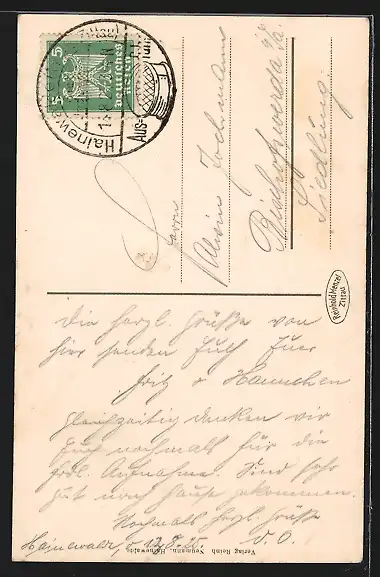 Deutsches
Reich
5 5
Hainewalde
Aus-
Herrn
Alwin Jochmann
Bischofswerda i/Sa.
Siedlung.
Reinhold Menzel
Zittau
Die herzl. Grüße von
hier senden Euch Eure
Fritz u Hannchen
Gleichzeitig danken wir
Euch nochmals für die
frdl. Aufnahme. Sind sehr
gut nach Hause gekommen.
Nochmals herzl. Grüße
Hainewalde, 12.8.25. D. O.
Verlag Reinh. Neumann, Hainewalde